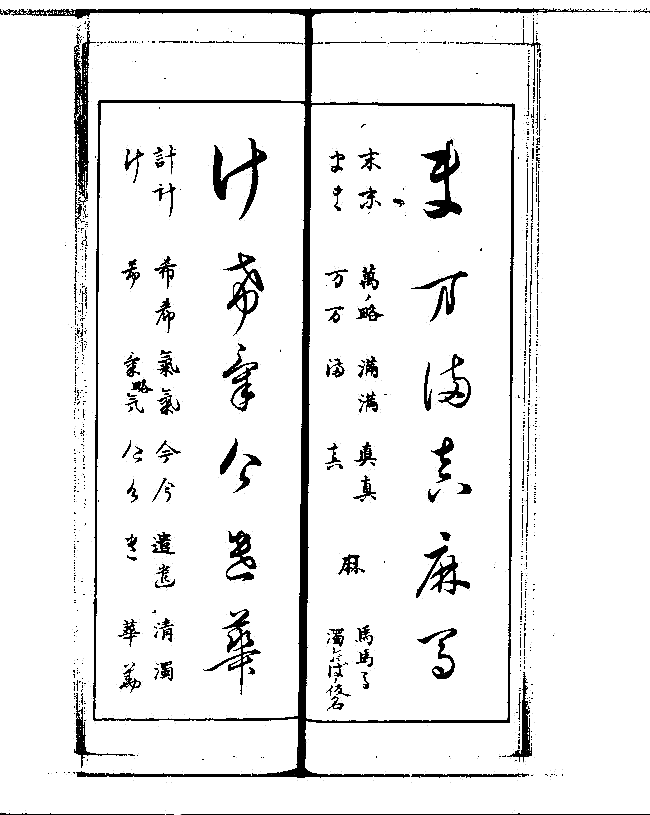 ま万満真麻馬
末末 萬ノ略 満満 真真 麻 馬馬馬
まま 万万 満 真
计希氣今遣華
計計 希希 氣氣 今今 遣遣 清濁
计 希 氣略気 今今 遣 華華